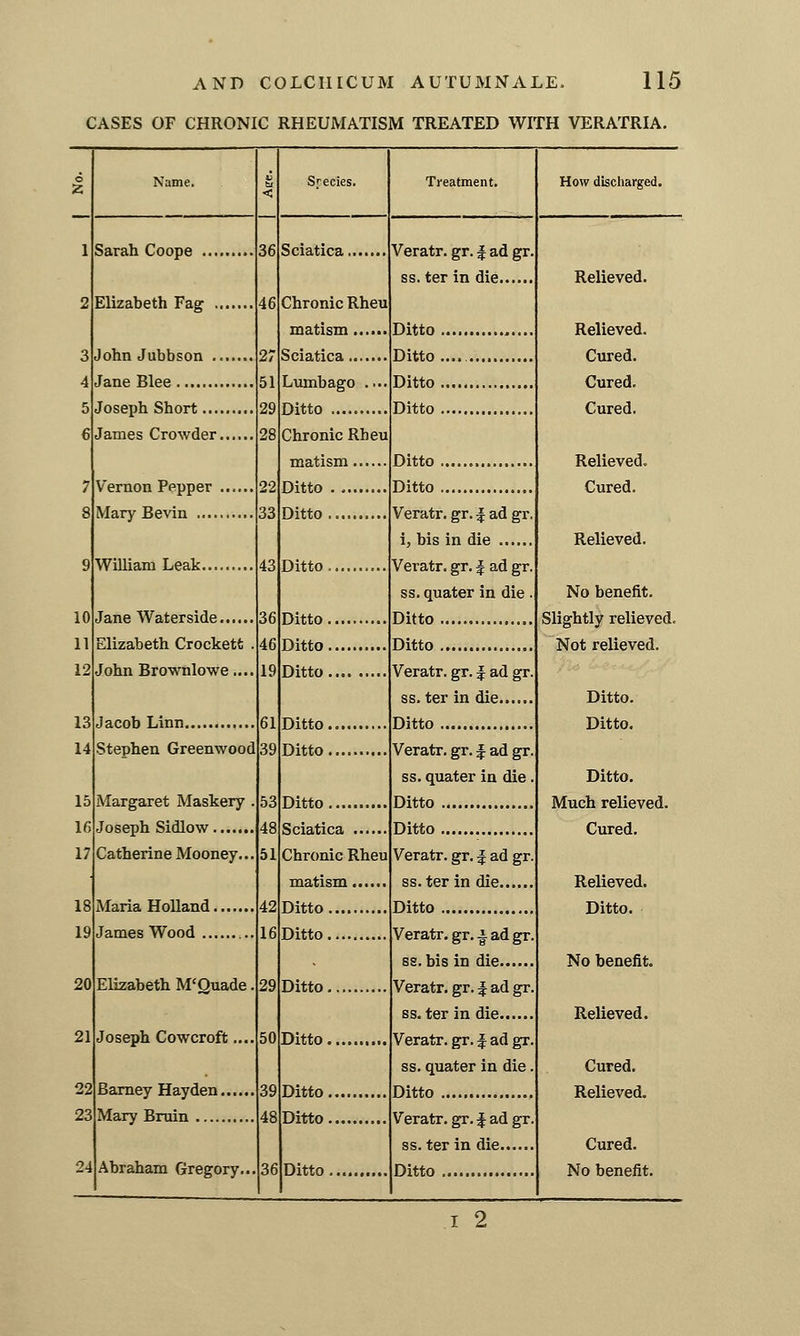 AND COLCHICUM AUTUMNALE. 115
CASES OF CHRONIC RHEUMATISM TREATED WITH VERATRIA.
No. Name. Age. Species. Treatment. How discharged.
1 Sarah Coope ......... 36 Sciatica ....... Veratr. gr. ¼ ad gr.
ss. ter in die...... Relieved.
2 Elizabeth Fag ....... 46 Chronic Rheu
matism ...... Ditto ................. Relieved.
3 John Jubbson ....... 27 Sciatica ....... Ditto .... ............ Cured.
4 Jane Blee ............. 51 Lumbago .... Ditto ................. Cured.
5 Joseph Short ......... 29 Ditto .......... Ditto ................. Cured.
6 James Crowder...... 28 Chronic Rheu
matism ...... Ditto ................. Relieved.
7 Vernon Pepper ...... 22 Ditto . ......... Ditto ................. Cured.
8 Mary Bevin .......... 33 Ditto .......... Veratr. gr. ¼ ad gr.
i, bis in die ...... Relieved.
9 William Leak......... 43 Ditto .......... Veratr. gr. ¼ ad gr.
ss. quater in die . No benefit.
10 Jane Waterside...... 36 Ditto .......... Ditto ................. Slightly relieved.
11 Elizabeth Crockett . 46 Ditto .......... Ditto ................. Not relieved.
12 John Brownlowe .... 19 Ditto .... ..... Veratr. gr. ¼ ad gr.
ss. ter in die...... Ditto.
13 Jacob Linn............ 61 Ditto .......... Ditto ................. Ditto.
14 Stephen Greenwood 39 Ditto .......... Veratr. gr. ¼ ad gr.
ss. quater in die . Ditto.
15 Margaret Maskery . 53 Ditto .......... Ditto ................. Much relieved.
16 Joseph Sidlow ....... 48 Sciatica ...... Ditto ................. Cured.
17 Catherine Mooney... 51 Chronic Rheu Veratr. gr. ¼ ad gr.
matism ...... ss. ter in die...... Relieved.
18 Maria Holland ....... 42 Ditto .......... Ditto ................. Ditto.
19 James Wood ......... 16 Ditto .......... Veratr. gr. ⅙ ad gr.
ss. bis in die...... No benefit.
20 Elizabeth M‘Quade . 29 Ditto .......... Veratr. gr. ¼ ad gr.
ss. ter in die...... Relieved.
21 Joseph Cowcroft .... 50 Ditto .......... Veratr. gr. ¼ ad gr.
ss. quater in die . Cured.
22 Barney Hayden...... 39 Ditto .......... Ditto ................. Relieved.
23 Mary Bruin .......... 48 Ditto .......... Veratr. gr. ¼ ad gr.
ss. ter in die...... Cured.
24 Abraham Gregory... 36 Ditto .......... Ditto ................. No benefit.
I 2